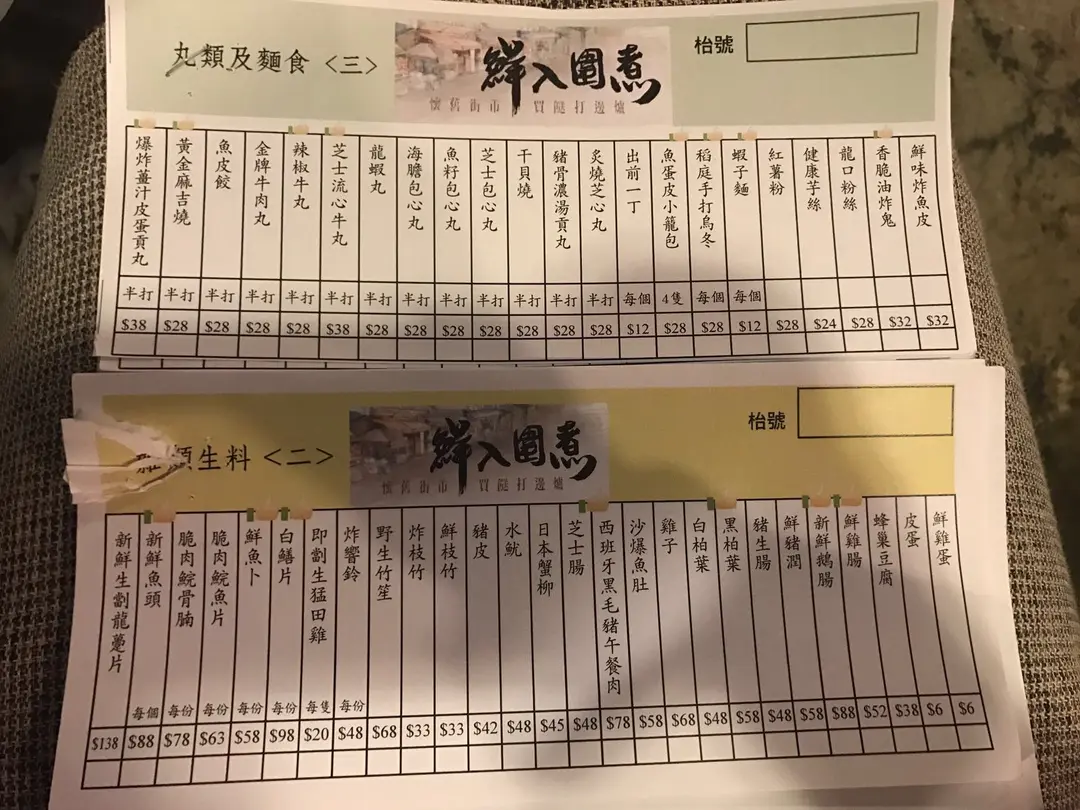 丸類及麵食<三>
鮮入圍煮
懷舊街市 買餸打邊爐
枱號
爆炸薑汁皮蛋貢丸 半打 $38
黃金麻吉燒 半打 $28
魚皮餃 半打 $28
金牌牛肉丸 半打 $28
辣椒牛丸 半打 $28
芝士流心牛丸 半打 $38
龍蝦丸 半打 $28
海膽包心丸 半打 $28
魚籽包心丸 半打 $28
芝士包心丸 半打 $28
干貝燒 半打 $28
豬骨濃湯貢丸 半打 $28
炙燒芝心丸 半打 $28
出前一丁 每個 $12
魚蛋皮小籠包 4隻 $28
稻庭手打烏冬 每個 $28
蝦子麵 每個 $12
紅薯粉 $28
健康芋絲 $24
龍口粉絲 $28
香脆油炸鬼 $32
鮮味炸魚皮 $32
類生料<二>
鮮入圍煮
懷舊街市 買餸打邊爐
枱號
新鮮生劏龍躉片 $138
新鮮魚頭 每個 $88
脆肉鯇骨腩 每份 $78
脆肉鯇魚片 每份 $63
鮮魚卜 每份 $58
白鱔片 每份 $98
即劏生猛田雞 每隻 $20
炸響鈴 每份 $48
野生竹笙 $68
炸枝竹 $33
鮮枝竹 $33
豬皮 $42
水魷 $48
日本蟹柳 $45
芝士腸 $48
西班牙黑毛豬午餐肉 $78
沙爆魚肚 $58
雞子 $68
白柏葉 $48
黑柏葉 $58
豬生腸 $48
鮮豬潤 $58
新鮮鵝腸 $88
鮮雞腸 $52
蜂巢豆腐 $38
皮蛋 $6
鮮雞蛋 $6